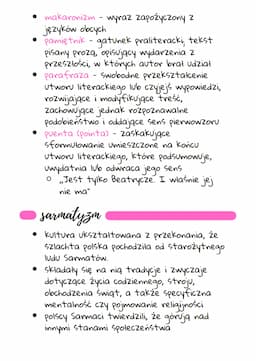 • makaronizm - wyraz zapożyczony z
języków obcych
• pamiętnik - gatunek praliteracki, tekst
pisany prozą, opisujący wydarzenia z
przeszłości, w których autor brał udział
• parafraza - swobodne przekształcenie
utworu literackiego lub czyjejś wypowiedzi,
rozwijające i modyfikujące treść,
zachowujące jednak rozpoznawalne
podobieństwo i oddające sens pierwowzoru
• puenta (pointa) - zaskakujące
sformułowanie umieszczone na końcu
utworu literackiego, które podsumowuje,
uwydatnia lub odwraca jego sens
○ „Jest tylko Beatrycze. I właśnie jej
nie ma"
sarmatyzm
• kultura ukształtowana z przekonania, że
szlachta polska pochodziła od starożytnego
ludu Sarmatów.
• składały się na nią tradycje i zwyczaje
dotyczące życia codziennego, stroju,
obchodzenia świąt, a także specyficzna
mentalność czy pojmowanie religijności
• polscy Sarmaci twierdzili, że górują nad
innymi stanami społeczeństwa